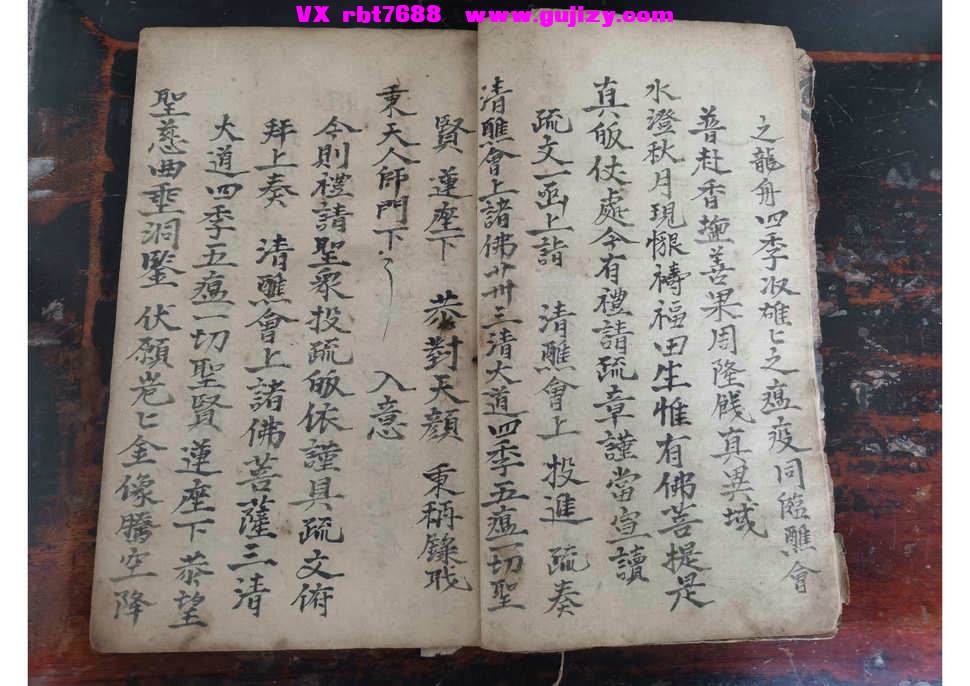 VX rbt7688 www.gujizy.com
之龍舟四季㳄雄匕之瘟疫同臨醮會
普赴香壇善果周隆餞真異域
水澄秋月現懇禱福田生惟有佛菩提是
真皈仗處今有禮請疏章謹當宣讀
疏文一函上詣 清醮會上 投進 疏奏
清醮會上諸佛卄卅三清大道四季五瘟一切聖
賢 蓮座下 恭對天顏 秉稱籙戝
秉天人師門下 入意
今則禮請聖衆投疏皈依謹具疏文俯
拜上奏 清醮會上諸佛菩薩三清
大道四季五瘟一切聖賢蓮座下 恭望
聖慈曲垂洞鑒 伏願巍匕金像騰空降